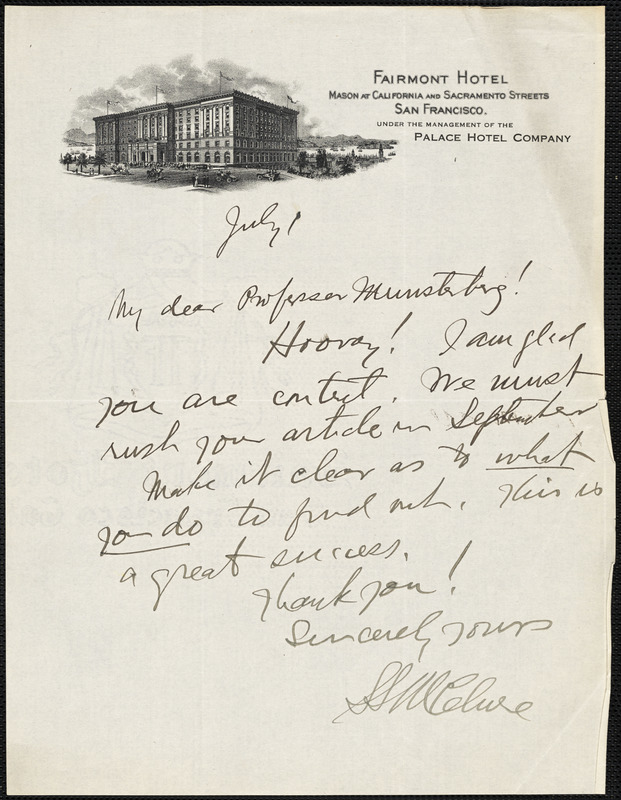 FAIRMONT HOTEL
MASON AT CALIFORNIA AND SACRAMENTO STREETS
SAN FRANCISCO.
UNDER THE MANAGEMENT OF THE
PALACE HOTEL COMPANY
July 1
My dear Professor Munsterberg!
Hooray! I am glad
you are content. We must
rush your article in September
Make it clear as to what
you do to find out. This is
a great success.
Thank you!
Sincerely yours
SSMcClure